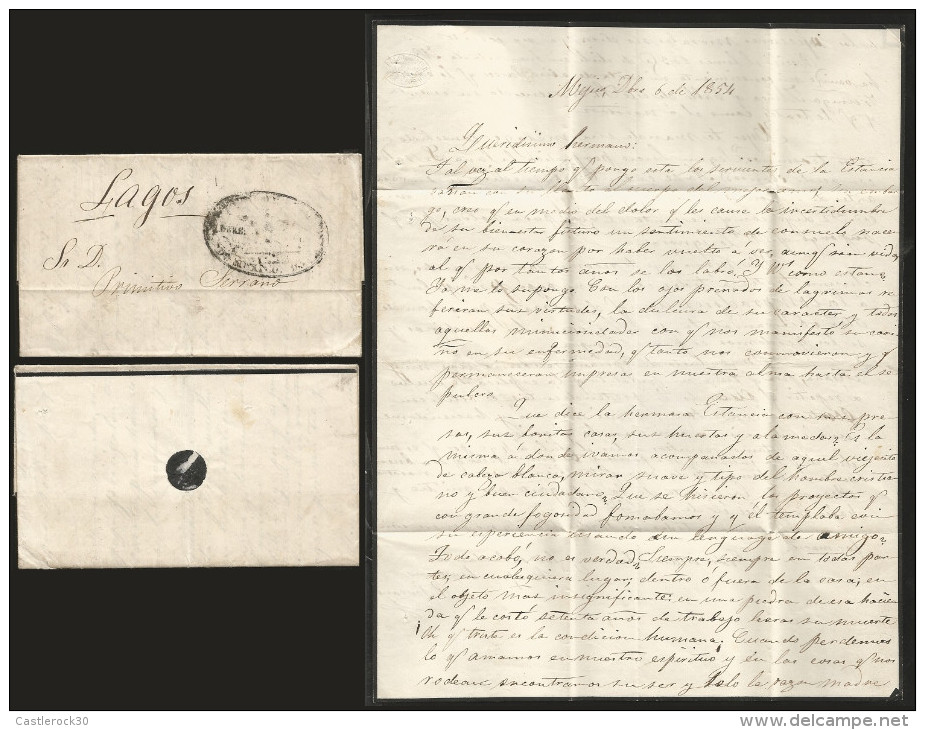 Lagos
Sr D.
Primitivo Serrano
Mejico, Dbre 6 de 1854
Queridisimo hermano:
Tal vez al tiempo q pongo esta los sirvientes de la Estancia
go, creo q en medio del dolor q les cause la incertidumbre
de su bienestar futuro un sentimiento de consuelo nace
ra en su corazon por haber vuelto á ver, aunq sin vida,
al q por tantos años se los labró. Y Ws. como estan?
Ya me lo supongo. Con los ojos preñados de lagrimas re
feriran sus virtudes, la dulzura de su caracter y todas
aquellas minuciosidades con q nos manifestó su cari
ño en su enfermedad, q tanto nos conmovieron y q
permaneceran impresas en nuestra alma hasta el se
pulcro.
Que dice la hermosa Estancia con sus pre
sas, sus bonitas casas, sus huertas y alamedas? Es la
misma á donde ivamos acompañados de aquel viejecito
de cabeza blanca, mirar suave y tipo del hombre cristia
no y buen ciudadano? Que se hicieron los proyectos q
con grande fogosidad formabamos y q él templaba con
su esperiencia usando un lenguage de amigo?
Todo acabó, no es verdad? Siempre, siempre en todas par
tes, en cualesquiera lugar, dentro ó fuera de la casa; en
el objeto mas insignificante: en una piedra de esa hacien
da q le costó setenta años de trabajo
Oh q triste es la condicion humana. Cuando perdemos
lo q amamos en nuestro espiritu y en las cosas q nos
rodean encontramos su ser y solo la razon
Castlerock30
delcampe.net